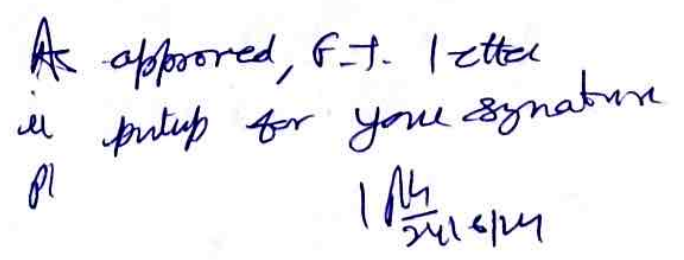 As approved, F.J. letter
is putup for your signature
pl
24/6/24